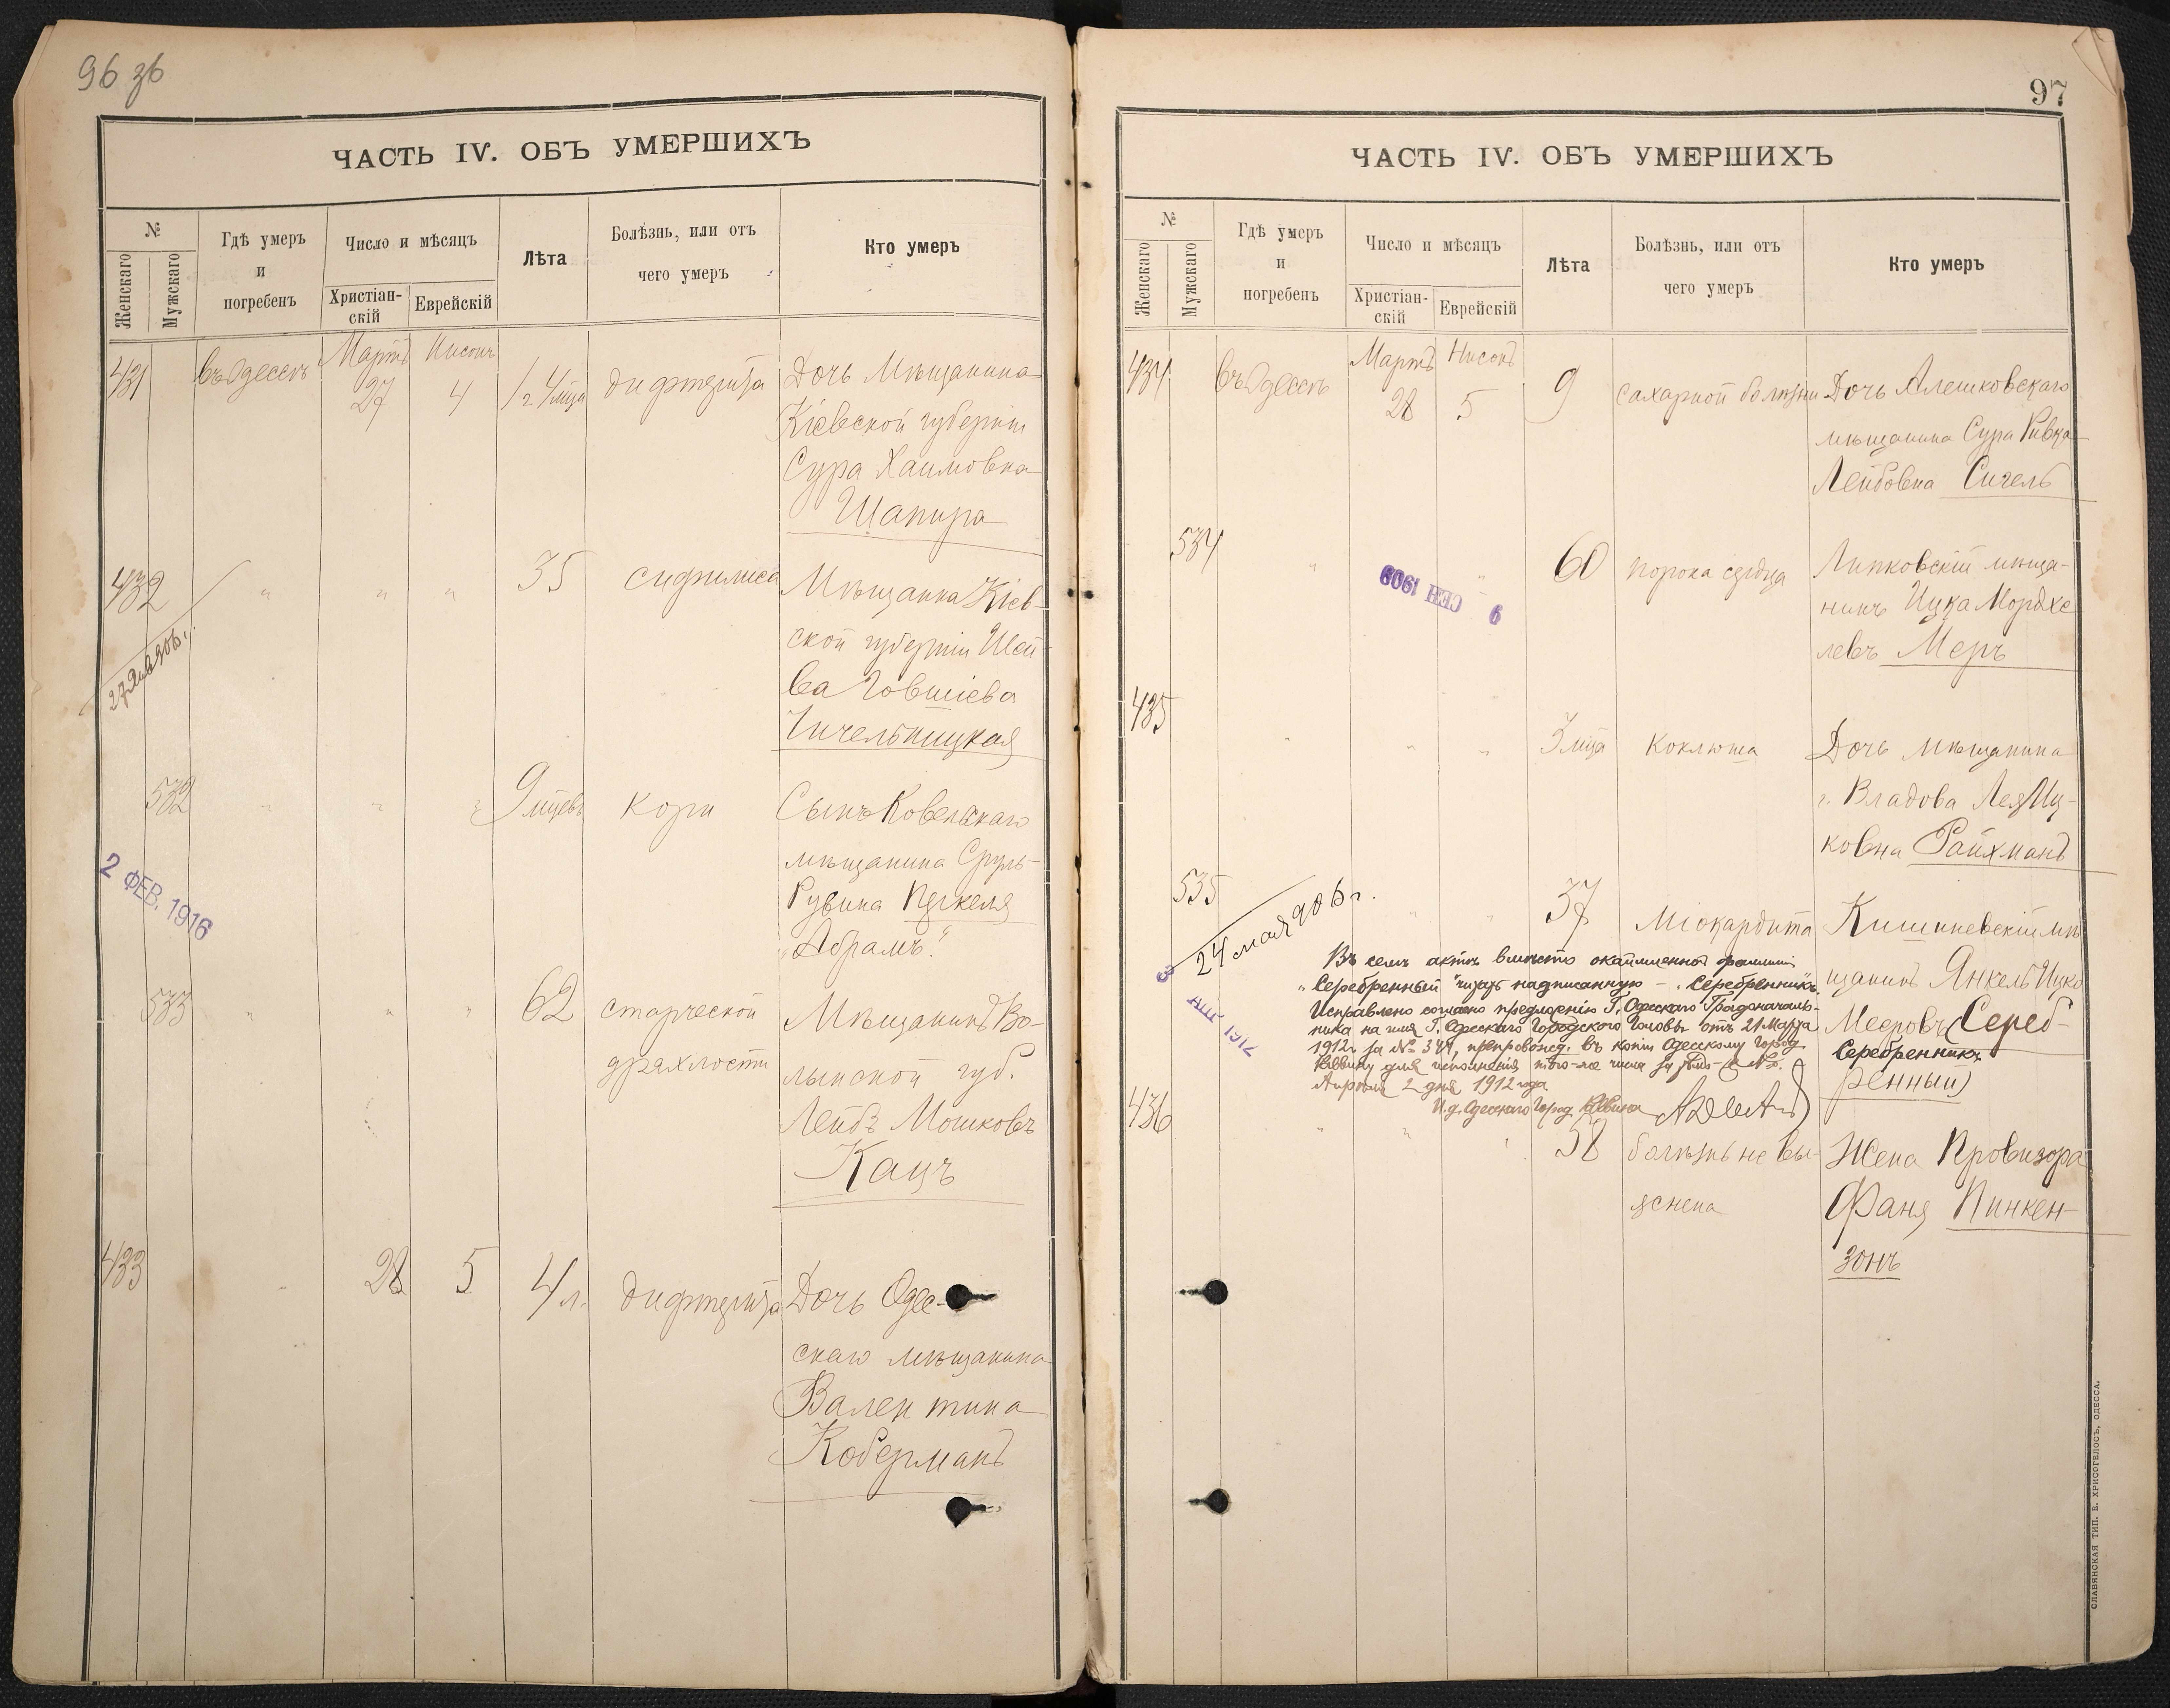 96 зв
ЧАСТЬ IV. ОБЪ УМЕРШИХЪ
№
Женскаго
Мужскаго
Гдѣ умеръ
и
погребенъ
Число и мѣсяцъ
Христіан-
скій
Еврейскій
Лѣта
Болѣзнь, или отъ
чего умеръ
Кто умеръ
431 въ Одессѣ Мартъ 27 Нисонъ 4 1 г. 4 мца дифтерита Дочь Мѣщанина
Кіевской губерніи
Сура Хаимовна
Шапира
432 " " " 35 сифилиса Мѣщанка Кіев-
ской губерніи Шей-
ва Говшіева
Чичельницкая
532 " " " 9 мцевъ кори Сынъ Ковельскаго
мѣщанина Сруль-
Рувина Перкеля
"Абрамъ."
2 ФЕВ. 1916
533 " " " 62 старческой Мѣщанинъ Во-
дряхлости лынской губ.
Лейбъ Мошковъ
Кацъ
433 " 28 5 4 л. дифтерита Дочь Одес-
скаго мѣщанина
Валентина
Коберманъ
97
ЧАСТЬ IV. ОБЪ УМЕРШИХЪ
№
Женскаго
Мужскаго
Гдѣ умеръ
и
погребенъ
Число и мѣсяцъ
Христіан-
скій
Еврейскій
Лѣта
Болѣзнь, или отъ
чего умеръ
Кто умеръ
434 въ Одессѣ Мартъ 28 Нисонъ 5 9 сахарной болѣзни Дочь Алешковскаго
мѣщанина Сура Ривка
Лейбовна Сигель
534 " " 60 порока сердца Липковскій мѣща-
нинъ Ицка Мордхе
левъ Меръ
9 СЕН 1909
435 " " " 3 мца коклюша Дочь мѣщанина
г. Владова Лея Иц-
ковна Райхманъ
535 " " 37 міокардита Кишиневскій мѣ
щанинъ Янкель Ицко
Мееровъ (Сереб-
Серебренникъ
ренный)
24 мая 906 г.
3 АПР 1912
Въ семъ актѣ вмѣсто окаймленной фамиліи
"Серебренный" читать надписанную - "Серебренникъ".
Исправлено согласно предложенію Г. Одесскаго Градоначаль-
ника на имя Г. Одесскаго Городского Головы отъ 21 Марта
1912 г. за № 341, препровожд. въ копіи Одесскому Город.
Раввину для исполненія того-же числа за №
Апрѣля 2 дня 1912 года
И. д. Одесскаго Город. Раввина
436 " " " 58 болѣзнь не вы- Жена Провизора
яснена Фаня Пинкен-
зонъ
СЛАВЯНСКАЯ ТИП. Е. ХРИСОГЕЛОСЪ, ОДЕССА.